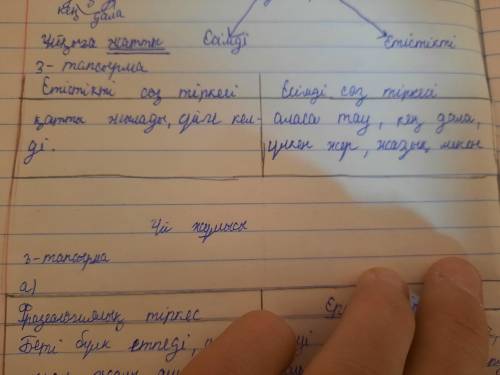 кең дала
Ұйқыға жатты Есімді Етістікті
3-тапсырма
Етістікті сөз тіркесі
қатты жылады, үйге кел-
ді.
Есімді сөз тіркесі
аласа тау, кең дала,
үлкен жер, жазық мекен
Үй жұмысы
3-тапсырма
а)
Фразеологиялық тіркес
Беті бүлк етпеді,